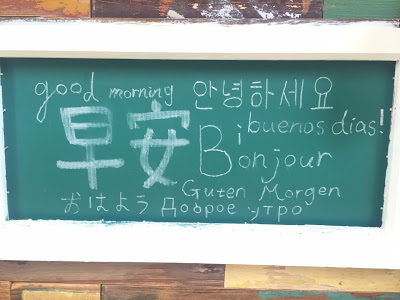 good morning 안녕하세요
buenos días!
早安
Bonjour
Guten Morgen
おはよう Доброе утро